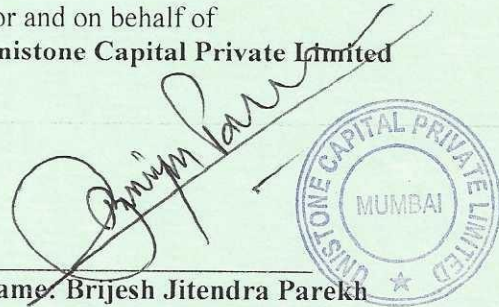 or and on behalf of
nistone Capital Private Limited
UNISTONE CAPITAL PRIVATE LIMITED
MUMBAI
ame: Brijesh Jitendra Parekh